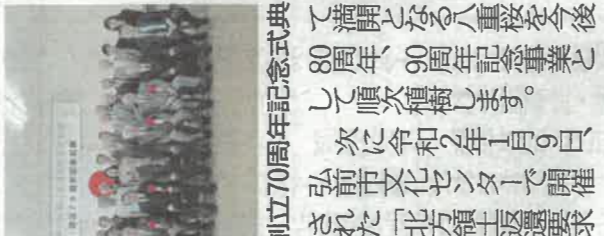 創立70周年記念式典
て満開となる八重桜を今後
80周年、90周年記念事業と
して順次植樹します。
次に令和2年1月9日、
弘前市文化センターで開催
された「北方領土返還要求